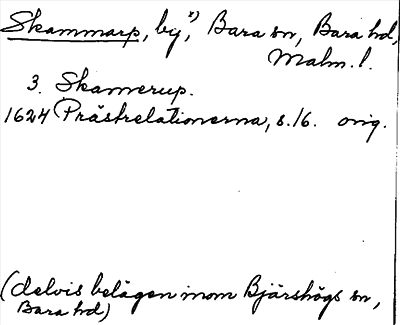 Skammarp, by,x) Bara sn, Bara hd,
Malm. l.
3. Skamerup.
1624 Prästrelationerna, s. 16. orig.
(delvis belägen inom Bjärshögs sn,
Bara hd)